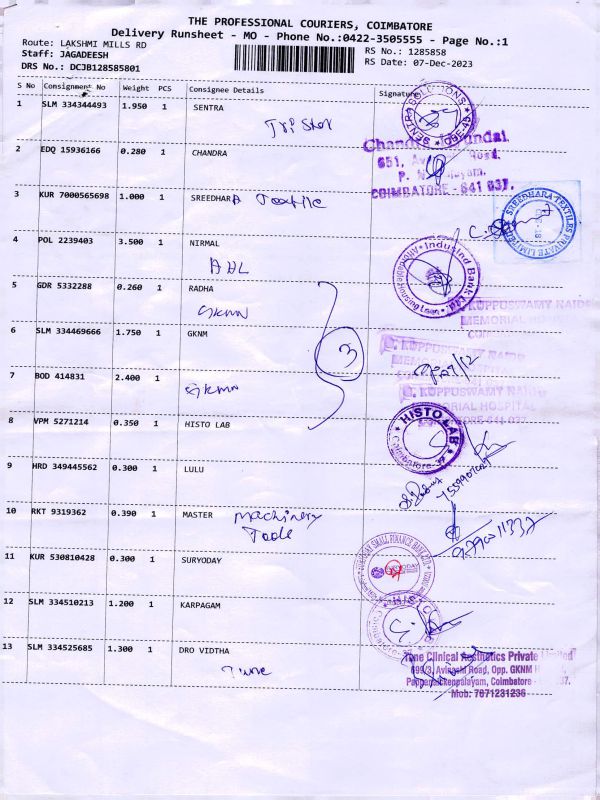 THE PROFESSIONAL COURIERS, COIMBATORE
Delivery Runsheet - MO - Phone No.:0422-3505555 - Page No.:1
Route: LAKSHMI MILLS RD
Staff: JAGADEESH
DRS No.: DCJB128585801
RS No.: 1285858
RS Date: 07-Dec-2023
S No Consignment No Weight PCS Consignee Details Signature
1 SLM 334344493 1.950 1 SENTRA
SENTRA SOLUTIONS
2 EDQ 15936166 0.280 1 CHANDRA
651, Road,
COIMBATORE - 641 037.
3 KUR 7000565698 1.000 1 SREEDHARA Textile
SREEDHARA TEXTILES PRIVATE LIMITED
4 POL 2239403 3.500 1 NIRMAL
IndusInd Bank Ltd
5 GDR 5332288 0.260 1 RADHA
GKNM
KUPPUSWAMY NAIDU
MEMORIAL HOSPITAL
6 SLM 334469666 1.750 1 GKNM
3
G. KUPPUSWAMY NAIDU
7 BOD 414831 2.400 1
GKNM
G. KUPPUSWAMY NAIDU
MEMORIAL HOSPITAL
8 VPM 5271214 0.350 1 HISTO LAB
HISTO LAB
Coimbatore-37
9 HRD 349445562 0.300 1 LULU
10 RKT 9319362 0.390 1 MASTER machinery
Tools
11 KUR 530810428 0.300 1 SURYODAY
SURYODAY SMALL FINANCE BANK LTD
12 SLM 334510213 1.200 1 KARPAGAM
13 SLM 334525685 1.300 1 DRO VIDTHA
Tone Clinical Aesthetics Private Limited
699/3, Avinashi Road, Opp. GKNM
Pappanaickenpalayam, Coimbatore - 37.
Mob: 7871231236